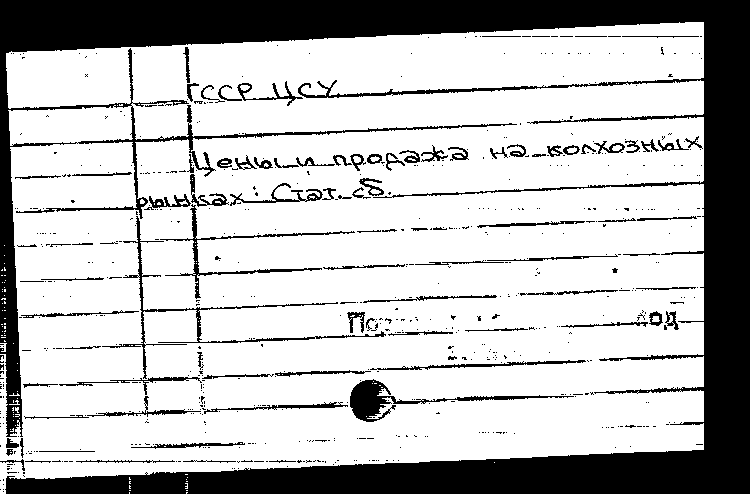 СССР ЦСУ
Цены и продажа на колхозных
рынках: Стат. сб.